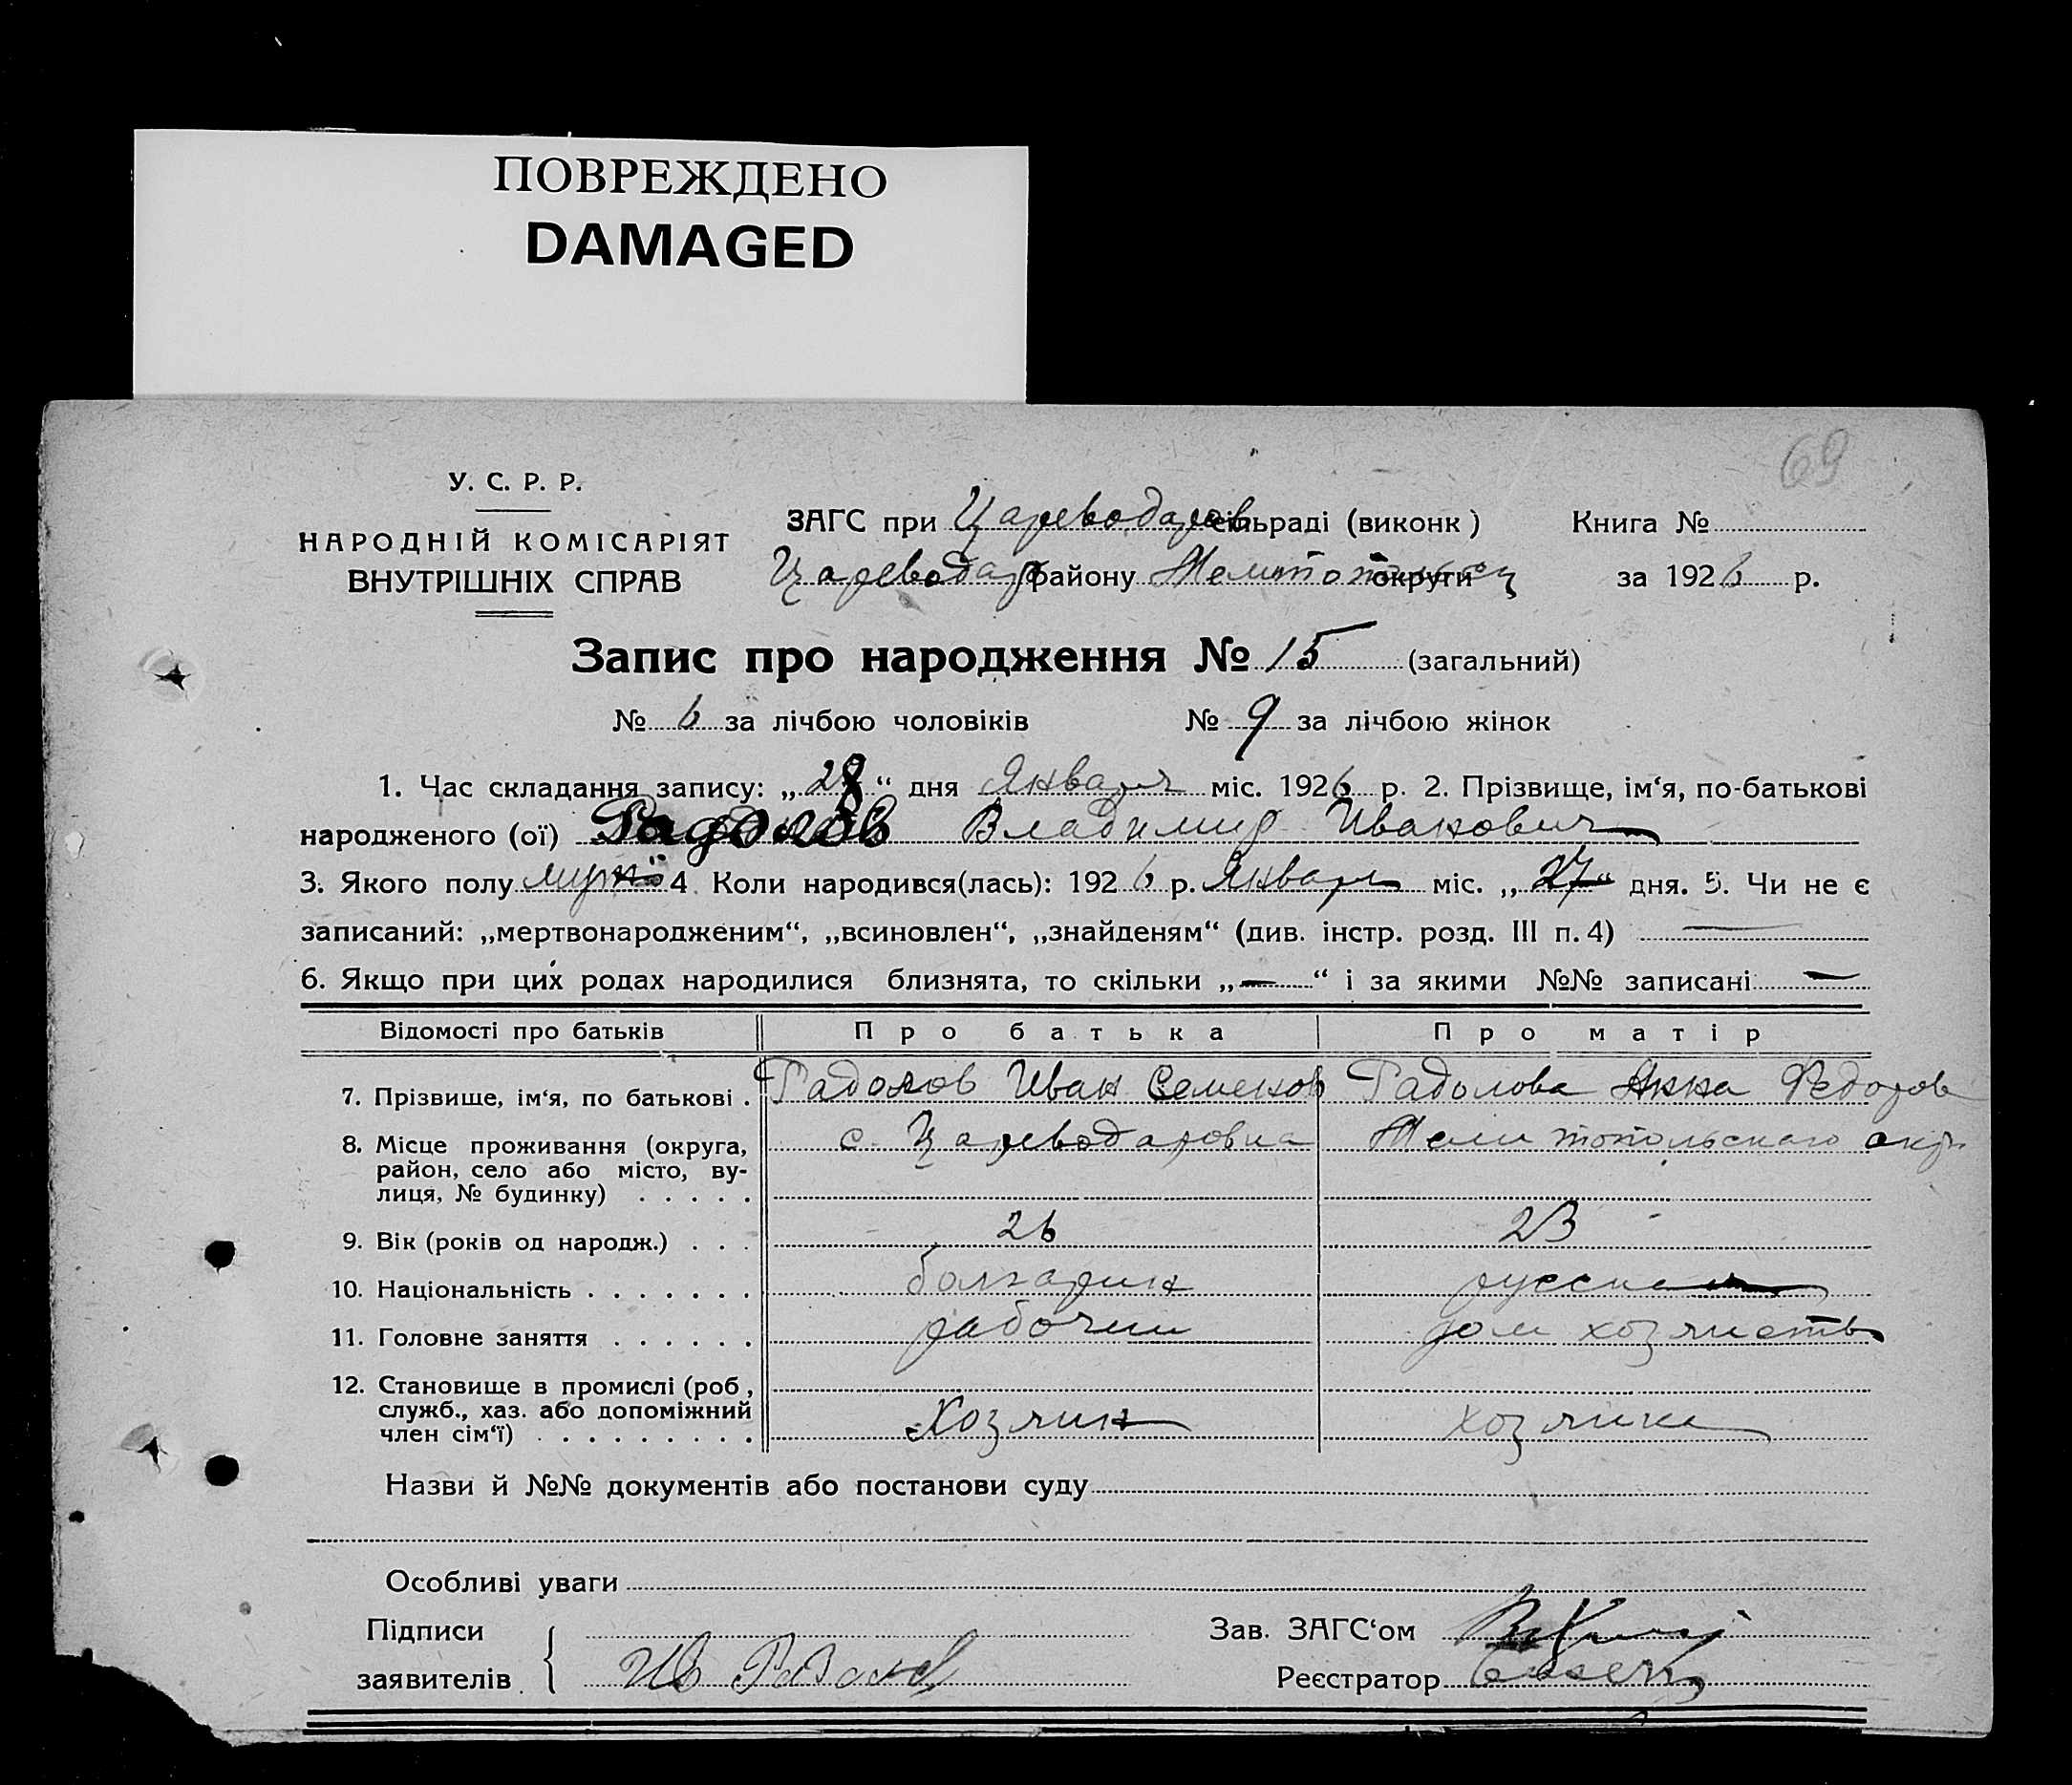 ПОВРЕЖДЕНО
DAMAGED
69
У. С. Р. Р.
НАРОДНІЙ КОМІСАРІЯТ
ВНУТРІШНІХ СПРАВ
ЗАГС при Цареводаров сільраді (виконк) Книга №
Цареводар району округи за 1926 р.
Запис про народження № 15 (загальний)
№ 6 за лічбою чоловіків № 9 за лічбою жінок
1. Час складання запису: „28“ дня Января міс. 1926 р. 2. Прізвище, ім‘я, по-батькові
народженого (ої) Радолов Владимир Иванович
3. Якого полу муж 4 Коли народився(лась): 1926 р. Января міс. „27“ дня. 5. Чи не є
записаний: „мертвонародженим“, „всиновлен“, „знайденям“ (див. інстр. розд. III п. 4) —
6. Якщо при цих родах народилися близнята, то скільки „—“ і за якими №№ записані —
Відомості про батьків Про батька Про матір
7. Прізвище, ім‘я, по батькові . Радолов Иван Семенов Радолова Анна Федоров
8. Місце проживання (округа, с. Цареводаровка Мелитопольского окр
район, село або місто, ву-
лиця, № будинку) . . . . .
9. Вік (років од народж.) . . . 26 23
10. Національність . . . . . . . болгарин русская
11. Головне заняття . . . . . . рабочий дом хозяиств
12. Становище в промислі (роб,
служб., хаз. або допоміжний Хозяин хозяика
член сім‘ї) . . . . . . . . .
Назви й №№ документів або постанови суду
Особливі уваги
Підписи Зав. ЗАГС‘ом
заявителів { Ив Радолов Реєстратор